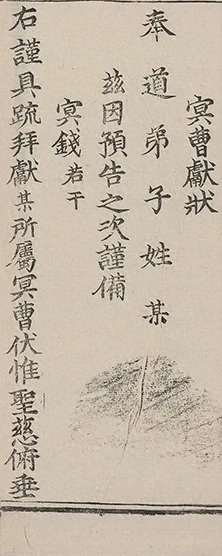 冥曹獻狀
奉道弟子姓某
茲因預告之次謹備
冥錢若干
右謹具疏拜獻某所屬冥曹伏惟聖慈俯垂